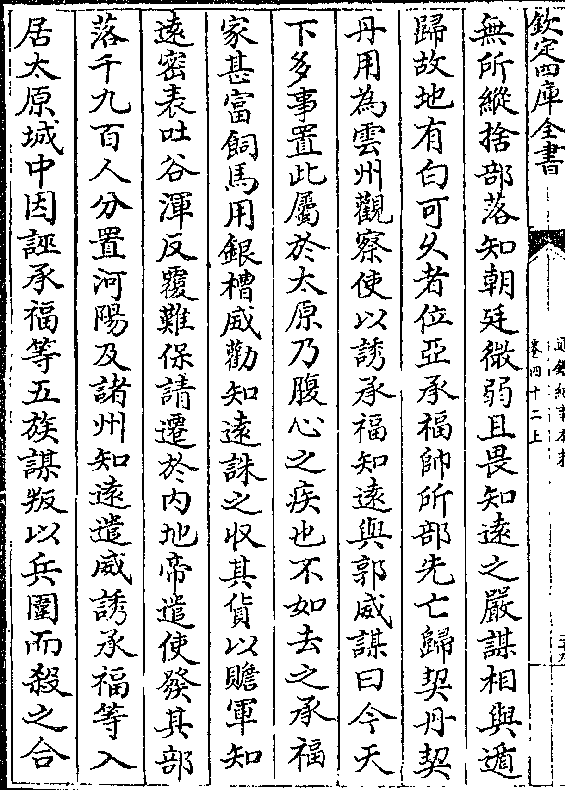 欽定四庫全書
卷四十二上
無所縱捨部落知朝廷微弱且畏知遠之嚴謀相與遁
歸故地有白可久者位亞承福帥所部先亡歸契丹契
丹用為雲州觀察使以誘承福知遠與郭威謀曰今天
下多事置此屬於太原乃腹心之疾也不如去之承福
家甚富飼馬用銀槽威勸知遠誅之收其貨以贍軍知
遠密表吐谷渾反覆難保請遷於内地帝遣使發其部
落千九百人分置河陽及諸州知遠遣威誘承福等入
居太原城中因誣承福等五族謀叛以兵圍而殺之合